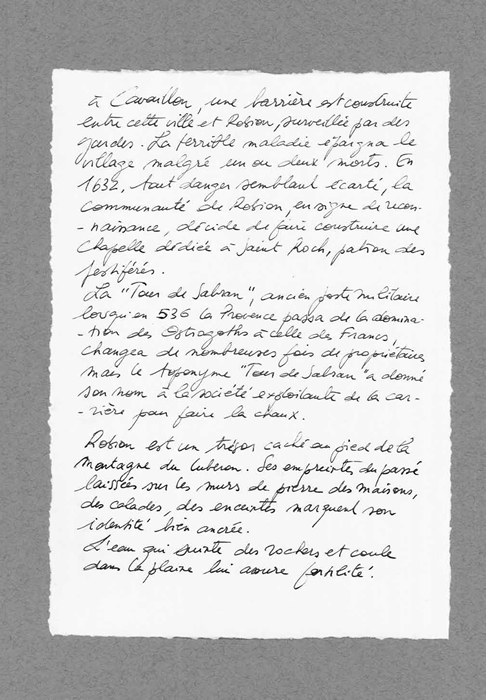 à Cavaillon, une barrière est construite
entre cette ville et Robion, surveillée par des
gardes. La terrible maladie épargna le
village malgré un ou deux morts. En
1632, tout danger semblant écarté, la
communauté de Robion, en signe de recon-
-naissance, décide de faire construire une
Chapelle dédiée à Saint Roch, patron des
pestiférés.
La "Tour de Sabran", ancien poste militaire
lorsqu'en 536 la Provence passa de la domina-
-tion des Ostrogoths à celle des Francs,
changea de nombreuses fois de propriétaires
mais le toponyme "Tour de Sabran" a donné
son nom à la société exploitante de la car-
-rière pour faire la chaux.
Robion est un trésor caché au pied de la
montagne du Luberon. Ses empreintes du passé
laissées sur les murs de pierre des maisons,
des calades, des enceintes marquent son
identité bien ancrée.
L'eau qui suinte des rochers et coule
dans la plaine lui assure fertilité.